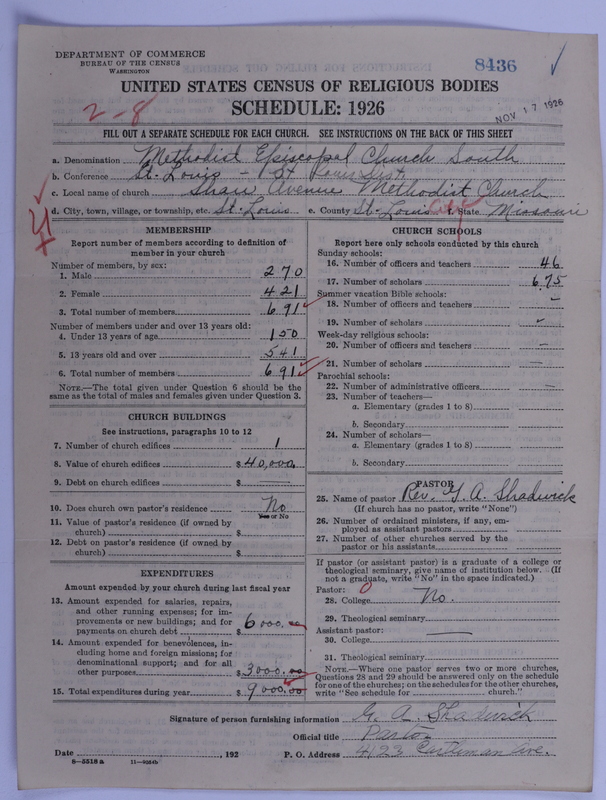 DEPARTMENT OF COMMERCE
BUREAU OF THE CENSUS
WASHINGTON
8436
2-8
UNITED STATES CENSUS OF RELIGIOUS BODIES
SCHEDULE: 1926
NOV 17 1926
FILL OUT A SEPARATE SCHEDULE FOR EACH CHURCH. SEE INSTRUCTIONS ON THE BACK OF THIS SHEET
a. Denomination Methodist Episcopal Church South
b. Conference St. Louis - St Louis Dist.
c. Local name of church Shaw Avenue Methodist Church
d. City, town, village, or township, etc. St. Louis e. County St. Louis City f. State Missouri
MEMBERSHIP
Report number of members according to definition of
member in your church
Number of members, by sex:
1. Male 270
2. Female 421
3. Total number of members 691
Number of members under and over 13 years old:
4. Under 13 years of age 150
5. 13 years old and over 541
6. Total number of members 691
NOTE.—The total given under Question 6 should be
same as the total of males and females given under Question 3.
CHURCH BUILDINGS
See instructions, paragraphs 10 to 12
7. Number of church edifices 1
8. Value of church edifices $ 40,000
9. Debt on church edifices $ —
10. Does church own pastor's residence No
Yes or No
11. Value of pastor's residence (if owned by
church) $
12. Debt on pastor's residence (if owned by
church) $
EXPENDITURES
Amount expended by your church during last fiscal year
13. Amount expended for salaries, repairs,
and other running expenses; for im-
provements or new buildings; and for
payments on church debt $ 6000.00
14. Amount expended for benevolences, in-
cluding home and foreign missions; for
denominational support; and for all
other purposes $ 3000.00
15. Total expenditures during year $ 9000.00
CHURCH SCHOOLS
Report here only schools conducted by this church
Sunday schools:
16. Number of officers and teachers 46
17. Number of scholars 675
Summer vacation Bible schools:
18. Number of officers and teachers –
19. Number of scholars –
Week-day religious schools:
20. Number of officers and teachers –
21. Number of scholars —
Parochial schools:
22. Number of administrative officers —
23. Number of teachers—
a. Elementary (grades 1 to 8)
b. Secondary
24. Number of scholars—
a. Elementary (grades 1 to 8)
b. Secondary
PASTOR
25. Name of pastor Rev. G. A. Shadwick
(If church has no pastor, write "None")
26. Number of ordained ministers, if any, em-
ployed as assistant pastors
27. Number of other churches served by the
pastor or his assistants
If pastor (or assistant pastor) is a graduate of a college or
theological seminary, give name of institution below. (If
not a graduate, write "No" in the space indicated.)
Pastor: 0
28. College No.
29. Theological seminary
Assistant pastor: —
30. College
31. Theological seminary
NOTE.—Where one pastor serves two or more churches,
Questions 28 and 29 should be answered only on the schedule
for one of the churches; on the schedules for the other churches,
write "See schedule for church."
Signature of person furnishing information G. A. Shadwick
Official title Pastor
Date , 192 P. O. Address 4123 Ave.
8—5518 a 11—9264b